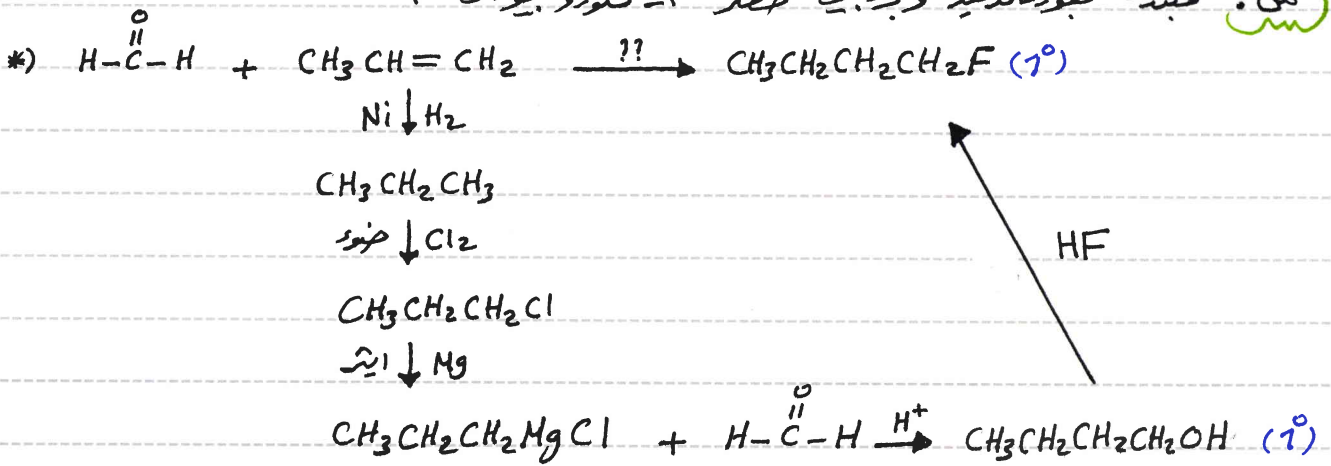 *) H-C(=O)-H + CH3CH=CH2 ??→ CH3CH2CH2CH2F (1°)
Ni ↓ H2
CH3CH2CH3
ضوء ↓ Cl2
CH3CH2CH2Cl
HF
ايثر ↓ Mg
CH3CH2CH2MgCl + H-C(=O)-H H+→ CH3CH2CH2CH2OH (1°)